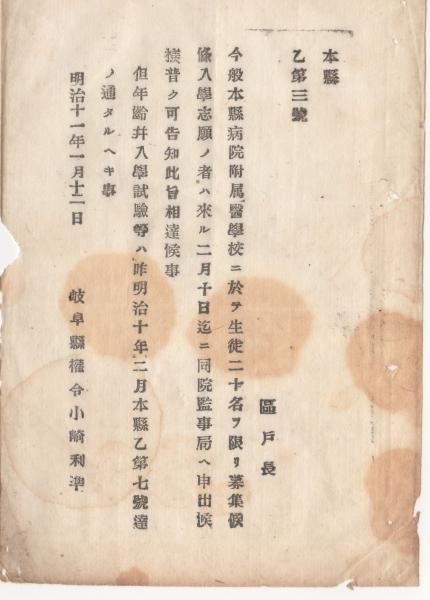 本縣
乙第三號
區戸長
今般本縣病院附属醫學校ニ於テ生徒二十名ヲ限リ募集候
條入學志願ノ者ハ來ル二月十日迄ニ同院監事局ヘ申出候
様普ク可告知此旨相達候事
但年齢幷入學試驗等ハ昨明治十年二月本縣乙第七號達
ノ通タルヘキ事
明治十一年一月十二日
岐阜縣權令小崎利準